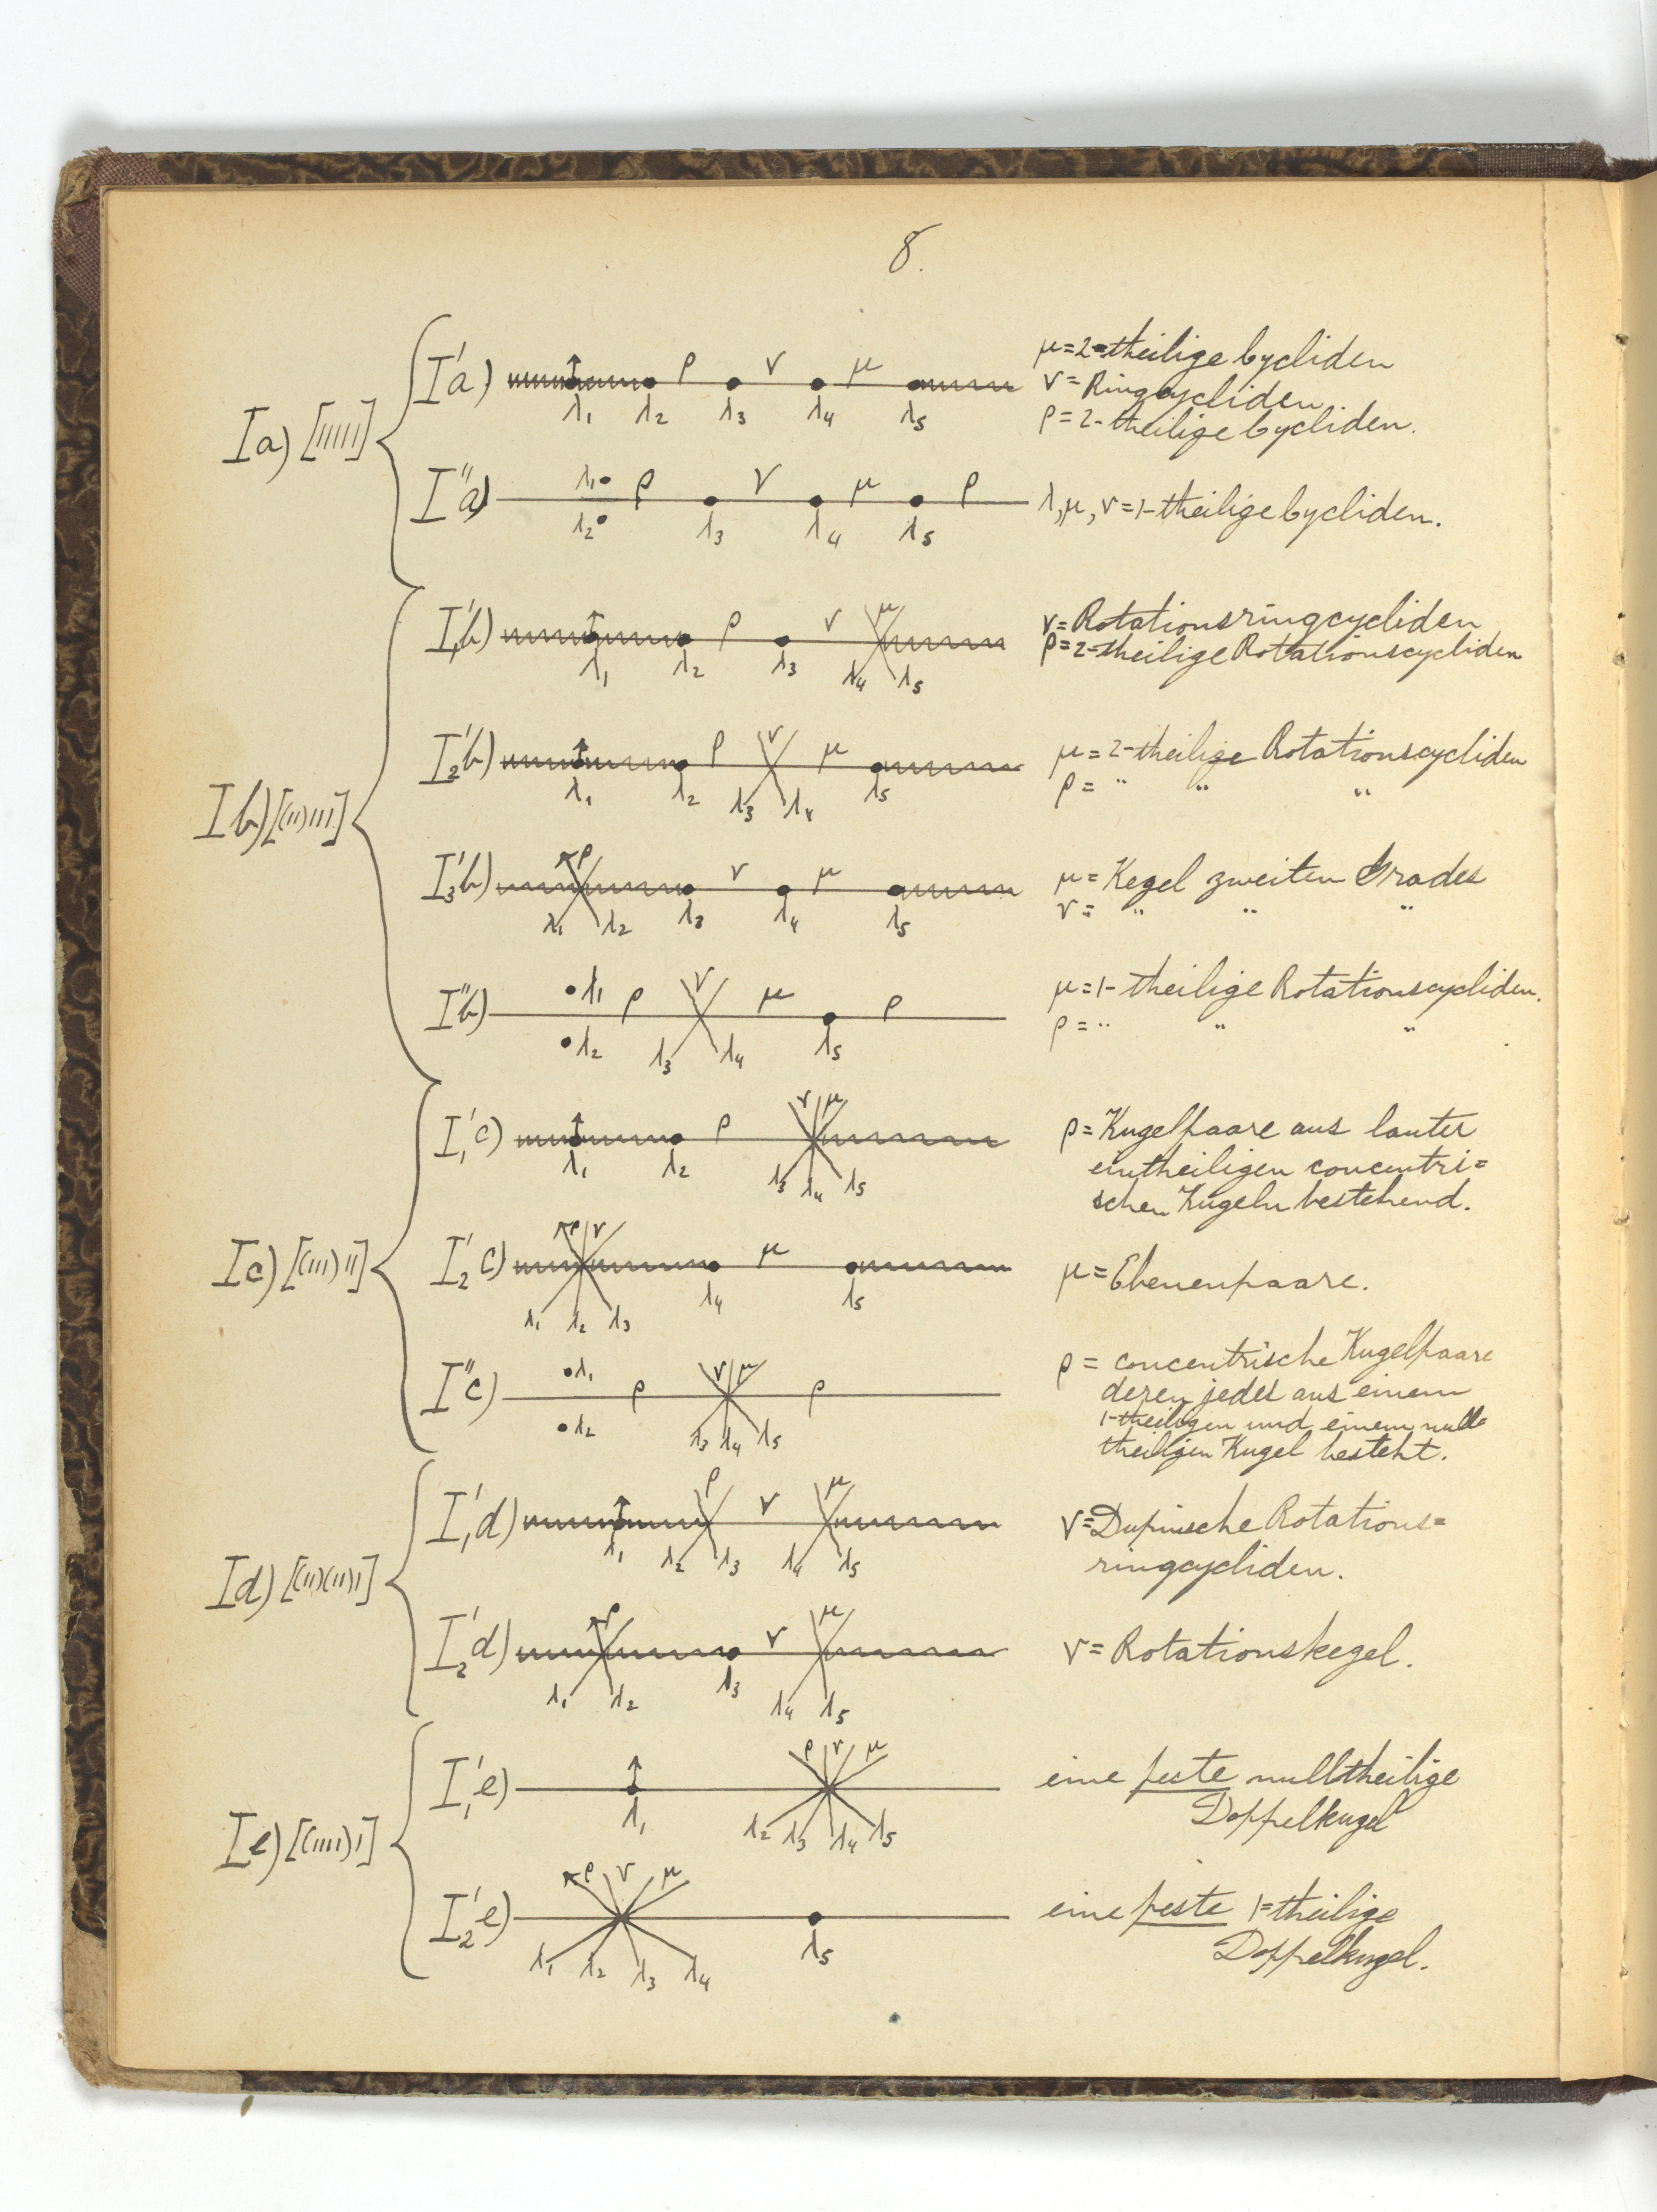 8.
Ia) [11111]
I'a) ρ ν μ
λ1 λ2 λ3 λ4 λ5
μ=2-theilige Cycliden
ν=Ringcycliden
ρ=2-theilige Cycliden.
I''a) λ1 ρ ν μ ρ
λ2 λ3 λ4 λ5
λ,μ,ν=1-theilige Cycliden.
Ib) [(11)111]
I'1b) ρ ν μ
λ1 λ2 λ3 λ4 λ5
ν=Rotationsringcycliden
ρ=2-theilige Rotationscycliden
I'2b) ρ ν μ
λ1 λ2 λ3 λ4 λ5
μ=2-theilige Rotationscycliden
ρ= " " "
I'3b) ρ ν μ
λ1 λ2 λ3 λ4 λ5
μ=Kegel zweiten Grades
ν= " " "
I''b) λ1 ρ ν μ ρ
λ2 λ3 λ4 λ5
μ=1-theilige Rotationscycliden.
ρ= " " "
Ic) [(111)11]
I'1c) ρ ν μ
λ1 λ2 λ3 λ4 λ5
ρ=Kugelpaare aus lauter
eintheiligen concentri=
schen Kugeln bestehend.
I'2c) ρ ν μ
λ1 λ2 λ3 λ4 λ5
μ=Ebenenpaare.
I''c) λ1 ρ ν μ ρ
λ2 λ3 λ4 λ5
ρ= concentrische Kugelpaare
deren jedes aus einem
1-theiligen und einem null=
theiligen Kugel besteht.
Id) [(11)(11)1]
I'1d) ρ ν μ
λ1 λ2 λ3 λ4 λ5
ν=Dupinsche Rotations=
ringcycliden.
I'2d) ρ ν μ
λ1 λ2 λ3 λ4 λ5
ν=Rotationskegel.
Ie) [(1111)1]
I'1e) ρ ν μ
λ1 λ2 λ3 λ4 λ5
eine feste nulltheilige
Doppelkugel
I'2e) ρ ν μ
λ1 λ2 λ3 λ4 λ5
eine feste 1=theilige
Doppelkugel.